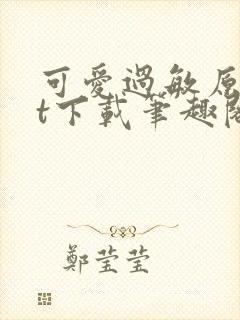 可愛過敏原
t下載筆趣閣
鄭莹莹